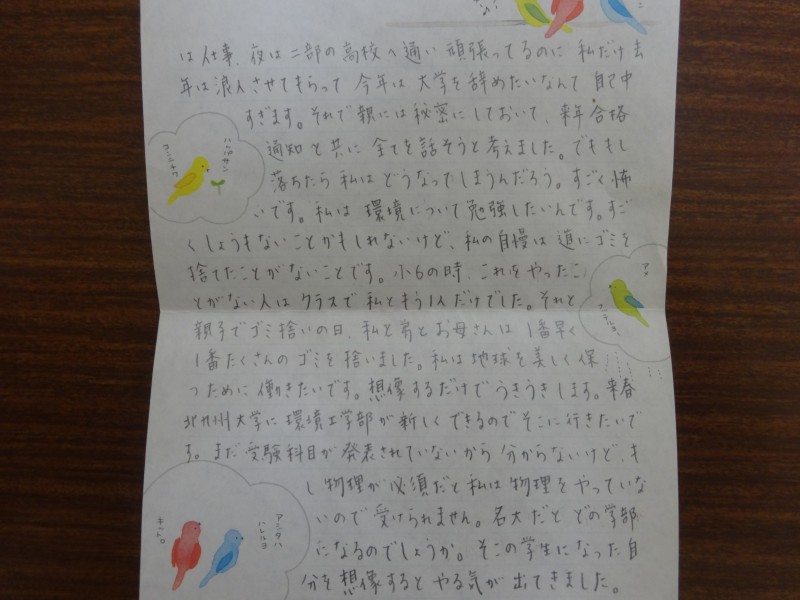 は仕事、夜は二部の高校へ通い頑張ってるのに私だけ去
年は浪人させてもらって今年は大学を辞めたいなんて自己中
すぎます。それで親には秘密にしておいて、来年合格
通知と共に全てを話そうと考えました。でももし
落ちたら私はどうなってしまうんだろう。すごく怖
いです。私は環境について勉強したいんです。すご
くしょうもないことかもしれないけど、私の自慢は道にゴミを
捨てたことがないことです。小6の時、これをやったこ
とがない人はクラスで私ともう1人だけでした。それと
親子でゴミ拾いの日、私と弟とお母さんは1番早く
1番たくさんのゴミを拾いました。私は地球を美しく保
つために働きたいです。想像するだけでうきうきします。来春
北九州大学に環境工学部が新しくできるのでそこに行きたいで
す。まだ受験科目が発表されていないから分からないけど、も
し物理が必須だと私は物理をやっていな
いので受けられません。名大だとどの学部
になるのでしょうか。そこの学生になった自
分を想像するとやる気が出てきました。
ハレ
アシタハ
ハレルヨ